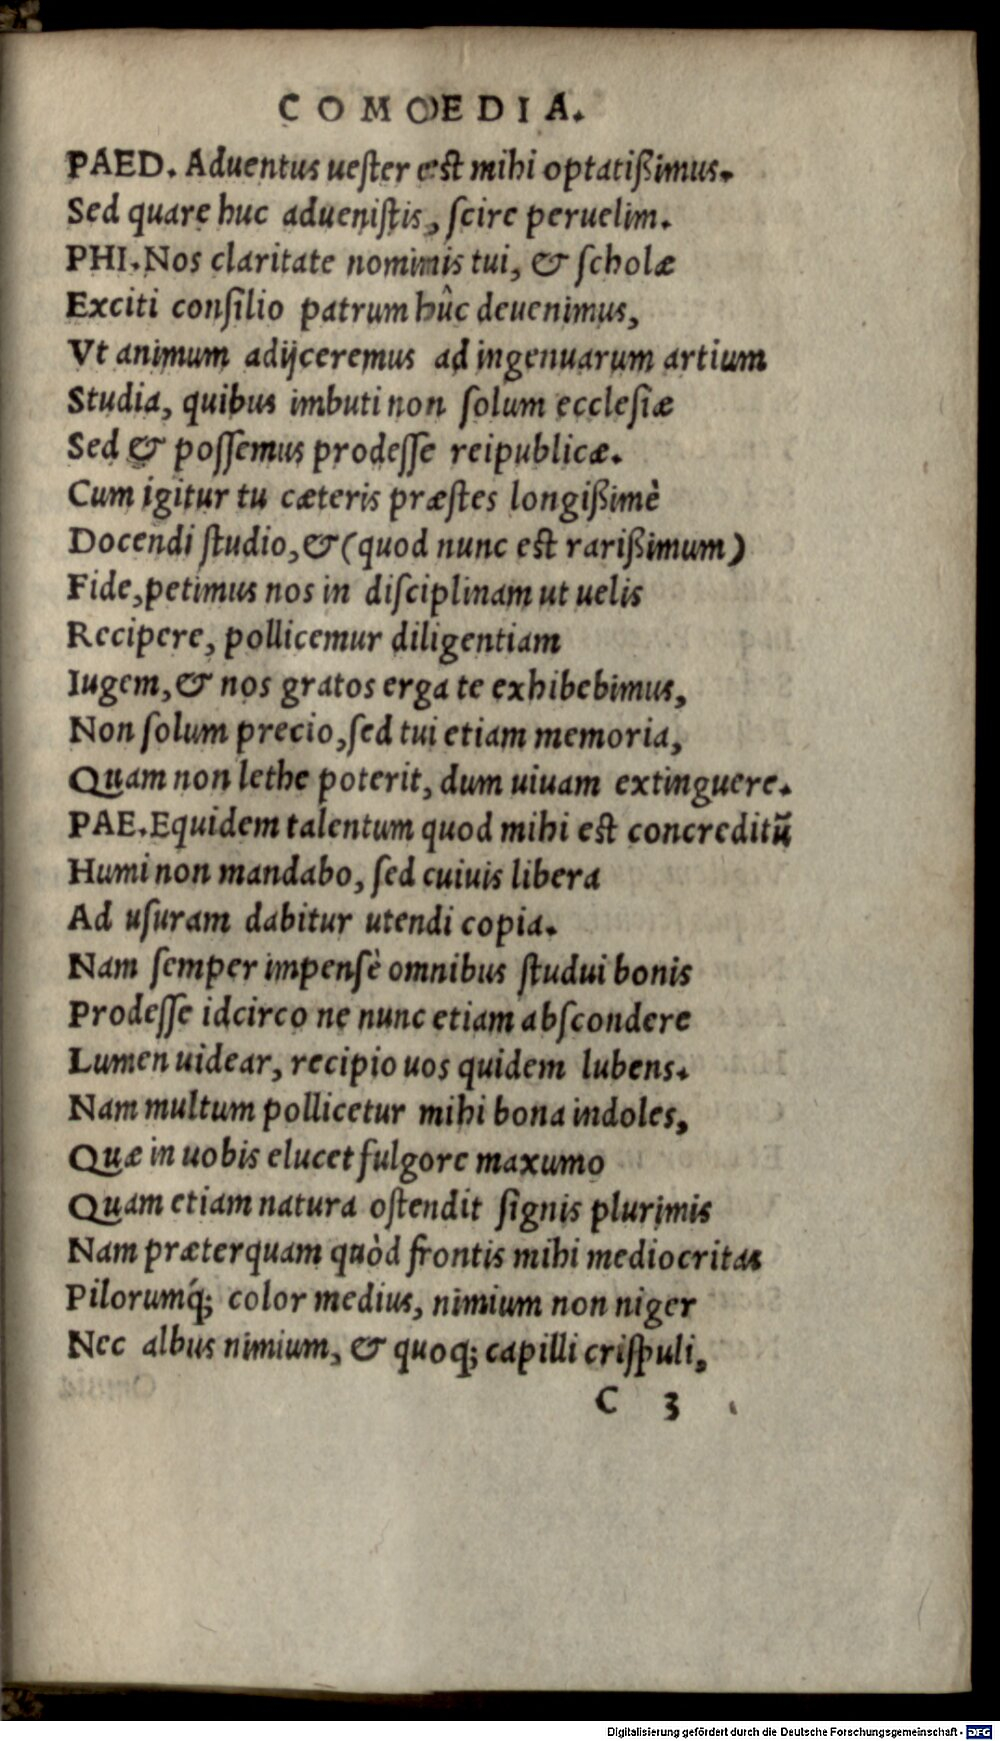 COMOEDIA.
PAED. Aduentus uester est mihi optatißimus.
Sed quare huc aduenistis, scire peruelim.
PHI. Nos claritate nominis tui, & scholæ
Exciti consilio patrum hûc deuenimus,
Vt animum adijceremus ad ingenuarum artium
Studia, quibus imbuti non solum ecclesiæ
Sed & possemus prodesse reipublicæ.
Cum igitur tu cæteris præstes longißimè
Docendi studio, & (quod nunc est rarißimum)
Fide, petimus nos in disciplinam ut uelis
Recipere, pollicemur diligentiam
Iugem, & nos gratos erga te exhibebimus,
Non solum precio, sed tui etiam memoria,
Quam non lethe poterit, dum uiuam extinguere.
PAE. Equidem talentum quod mihi est concreditũ
Humi non mandabo, sed cuiuis libera
Ad usuram dabitur utendi copia.
Nam semper impensè omnibus studui bonis
Prodesse idcirco ne nunc etiam abscondere
Lumen uidear, recipio uos quidem lubens.
Nam multum pollicetur mihi bona indoles,
Quæ in uobis elucet fulgore maxumo
Quam etiam natura ostendit signis plurimis
Nam præterquam quòd frontis mihi mediocritas
Pilorumq́; color medius, nimium non niger
Nec albus nimium, & quoq; capilli crispuli,
C 3
Digitalisierung gefördert durch die Deutsche Forschungsgemeinschaft - DFG